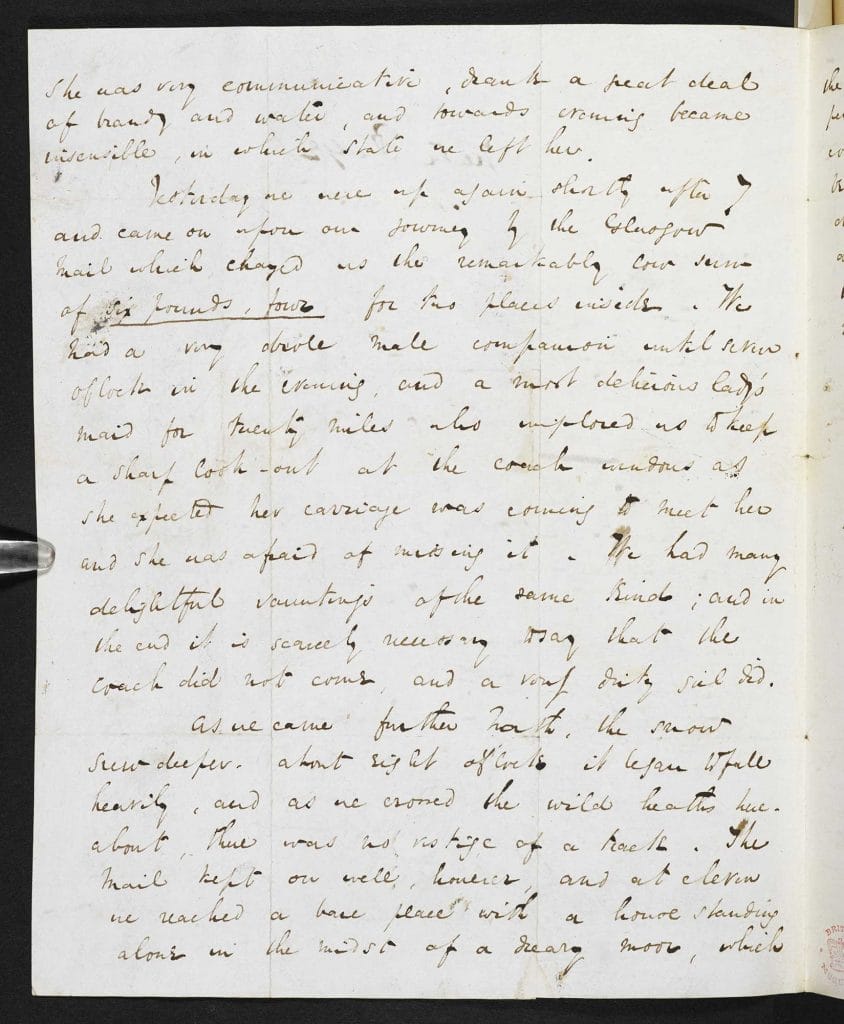 She was very communicative, drank a great deal
of brandy and water, and towards evening became
insensible, in which state we left her.
Yesterday we were up again shortly after 7
and came on upon our journey by the Glasgow
Mail which charged us the remarkably low sum
of six pounds, four for two places inside. We
had a very droll male companion until seven
oClock in the evening, and a most delicious lady's
maid for twenty miles who implored us to keep
a sharp look-out at the coach windows as
she expected her carriage was coming to meet her
and she was afraid of missing it. We had many
delightful vauntings of the same kind; and in
the end it is scarcely necessary to say that the
coach did not come, and a very dirty girl did.
As we came further North, the snow
grew deeper. About eight oClock it began to fall
heavily, and as we crossed the wild heaths here-
about, there was no vestige of a track. The
Mail kept on well, however, and at eleven
we reached a bare place with a house standing
alone in the midst of a dreary moor, which
the